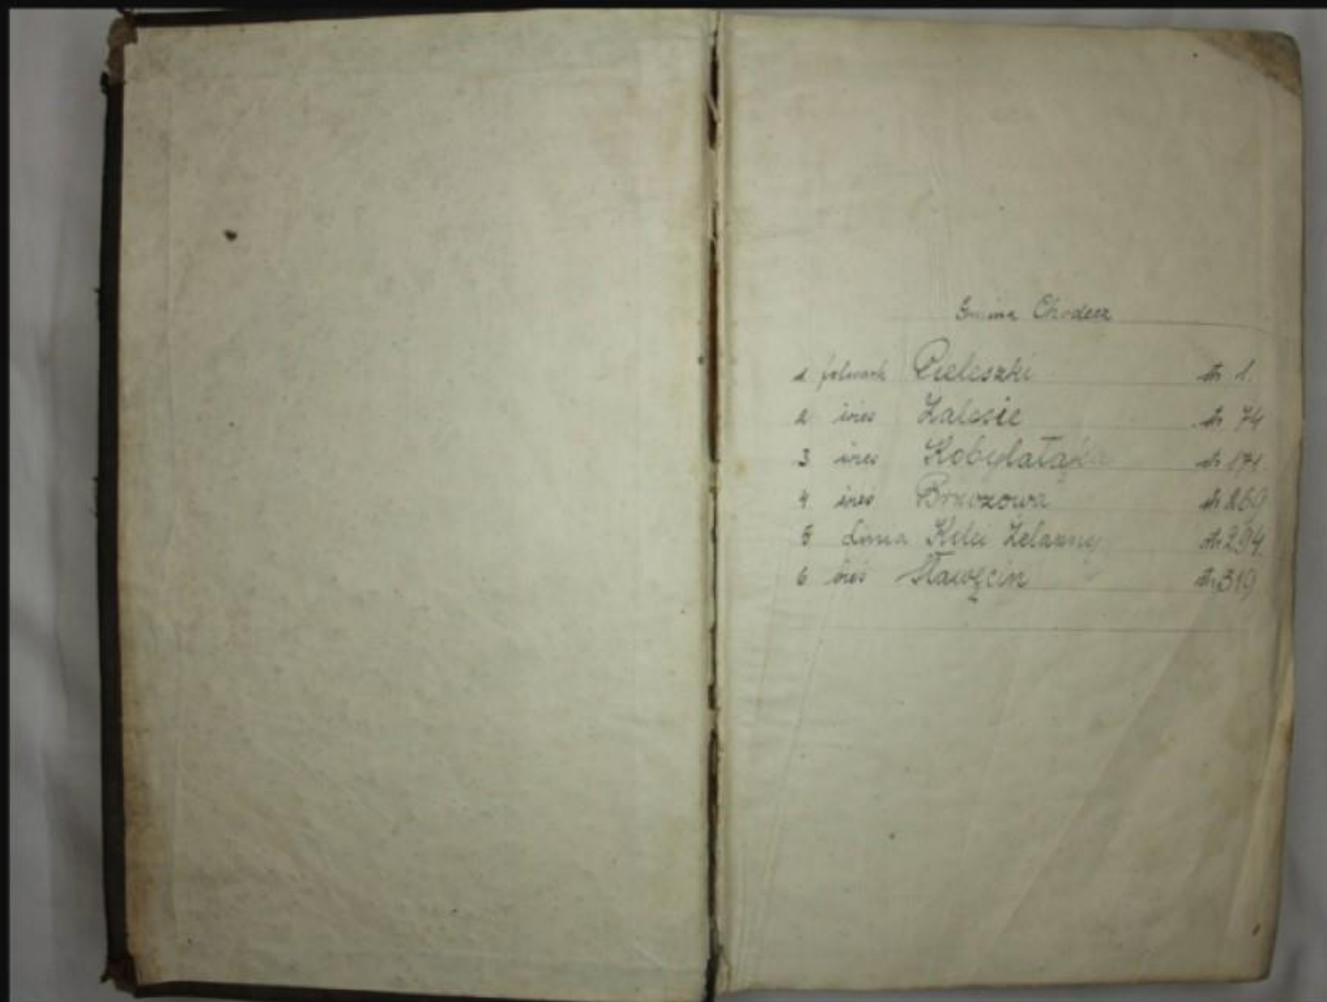 Gmina Chodecz
1 folwark Pieleszki str 1.
2 wieś Zalesie str 74
3 wieś Kobylałąka str 171.
4 wieś Brzozowa str 269
5 Linia Kolei Żelaznej str 294.
6 wieś Sławęcin str 319